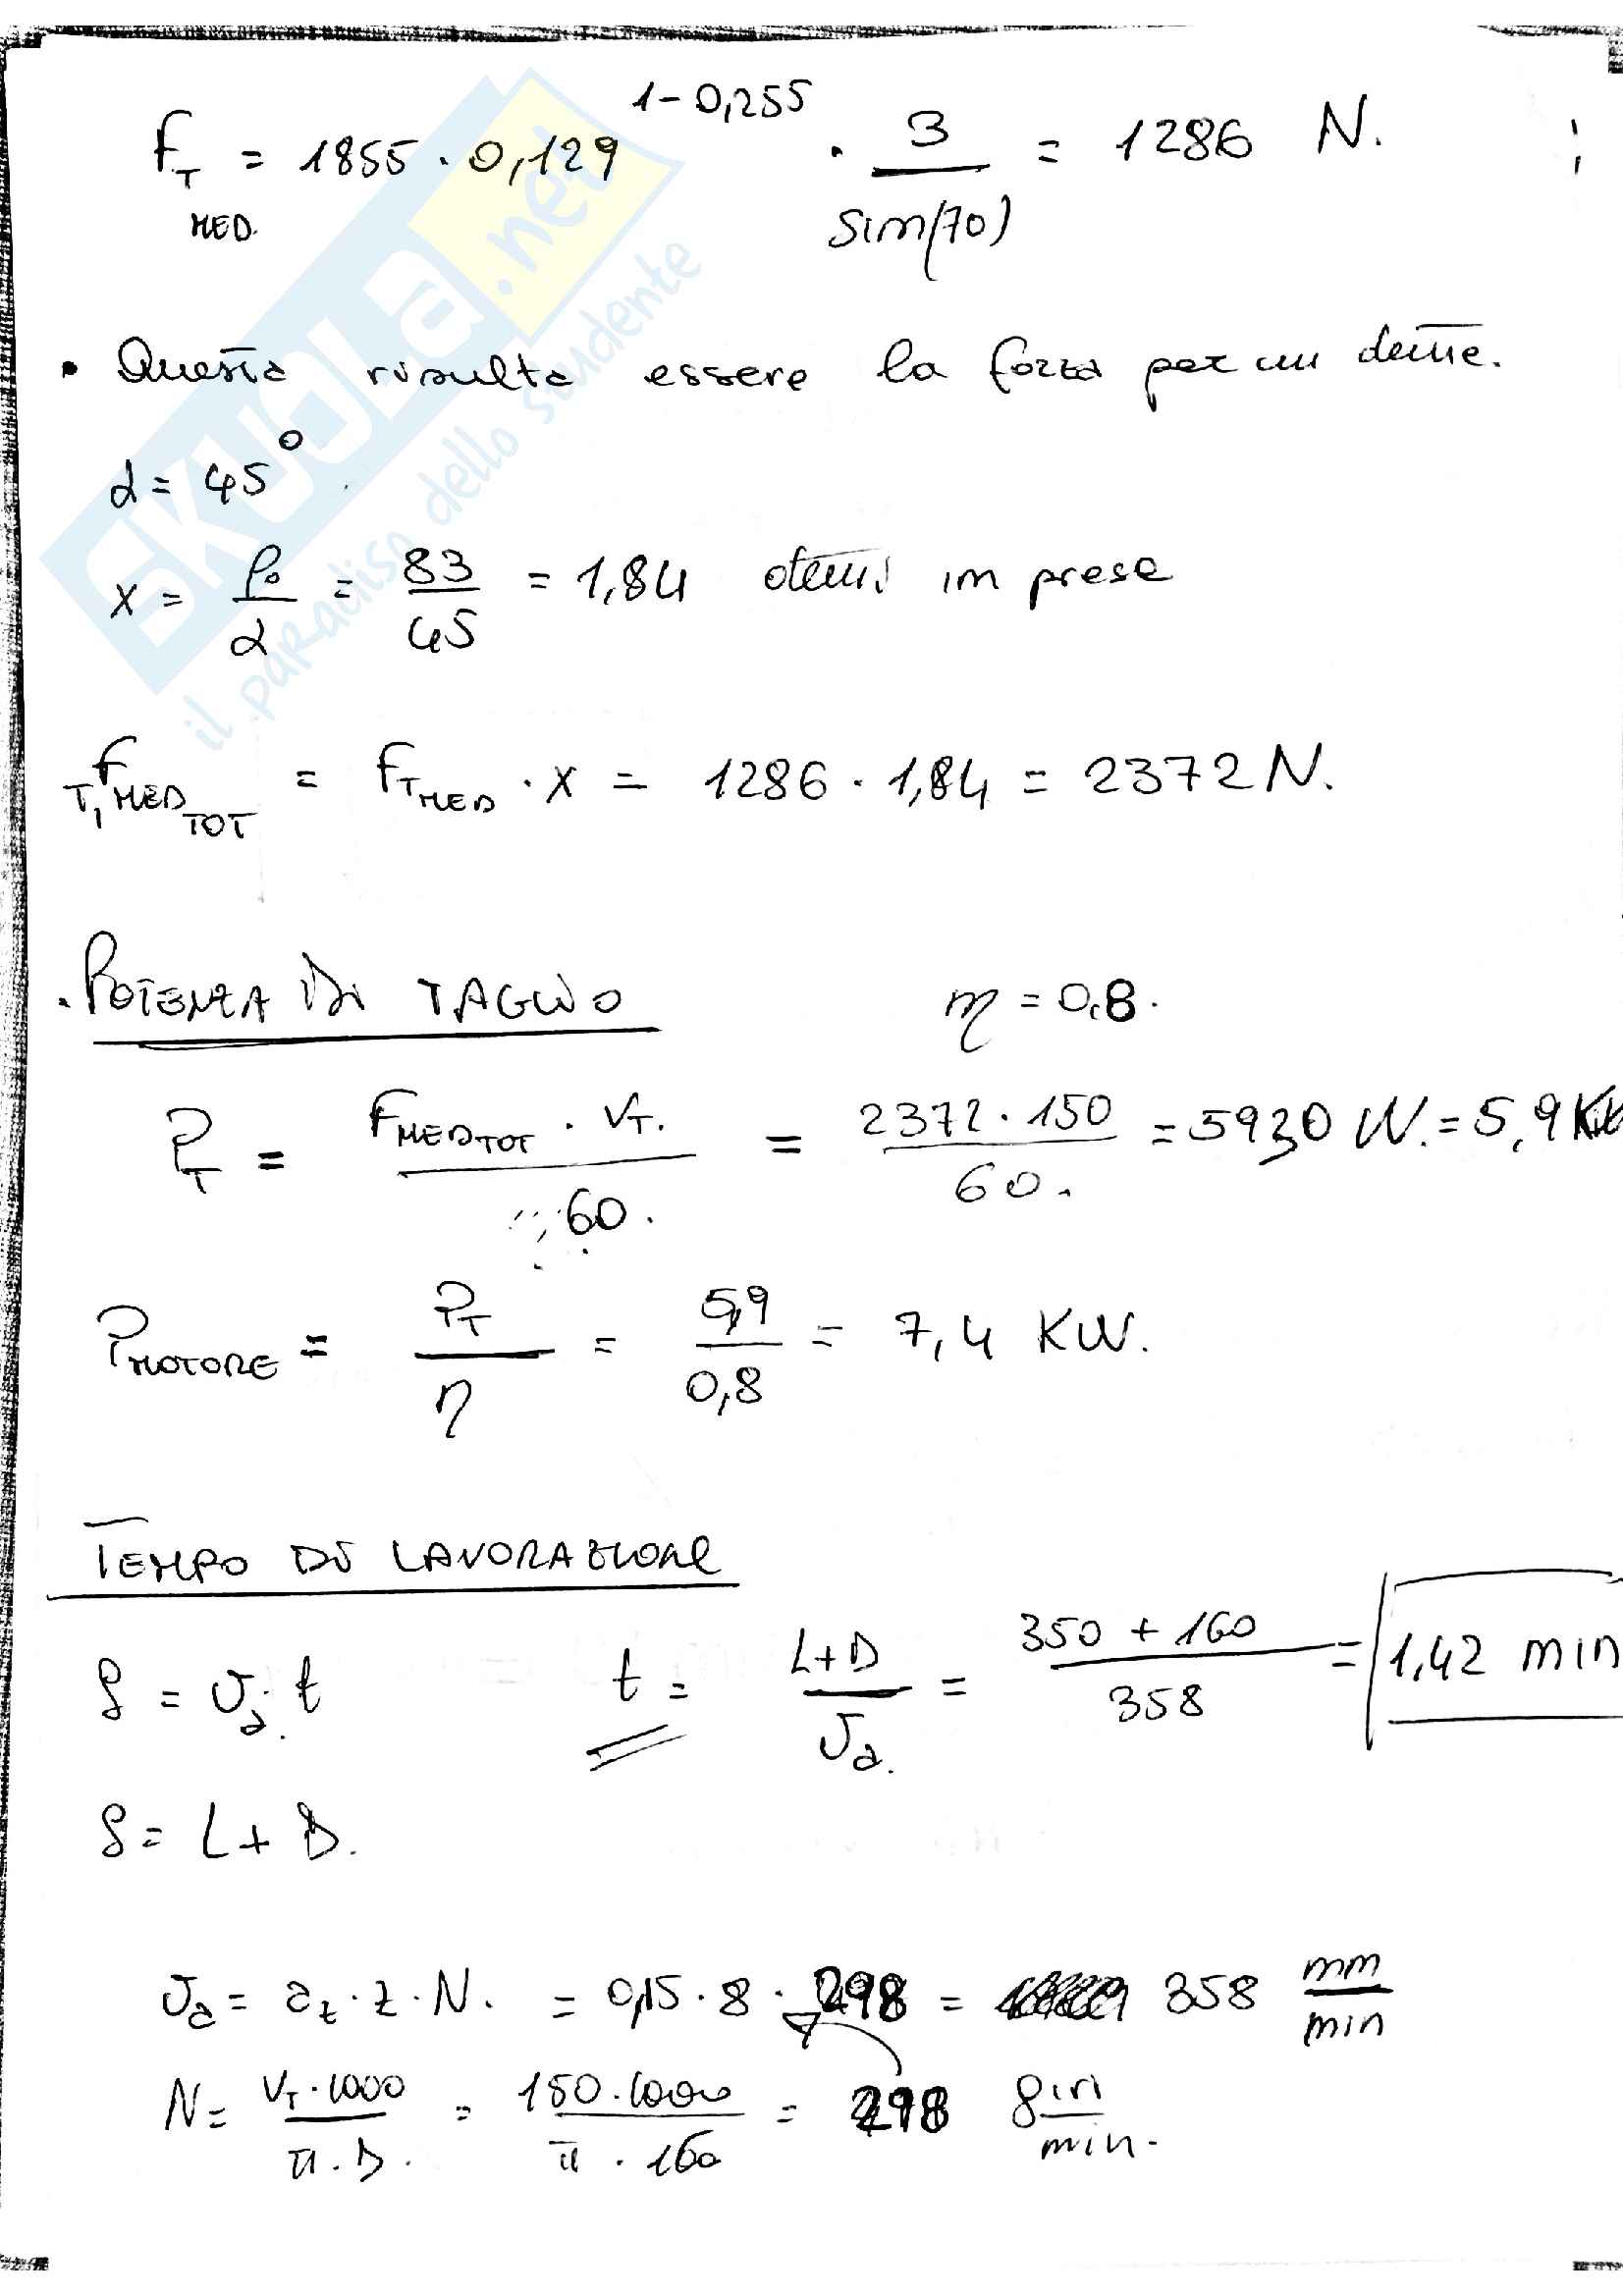 F_T MED. = 1855 · 0,129^(1-0,255) · 3/sin(70) = 1286 N. ;
• Questa risulta essere la forza per un dente.
α = 45°
x = φ₀/α = 83/45 = 1,84 denti in presa
F_T,MED TOT = F_T MED · x = 1286 · 1,84 = 2372 N.
. POTENZA DI TAGLIO η = 0,8.
P_T = F_MED TOT · V_T. / 60. = 2372 · 150 / 60. = 5930 W. = 5,9 KW
P_MOTORE = P_T/η = 5,9/0,8 = 7,4 KW.
TEMPO DI LAVORAZIONE
S = V_a · t t = L+D / V_a. = 350 + 160 / 358 = 1,42 min
S = L + D.
V_a = a_z · z · N. = 0,15 · 8 · 298 = 358 mm/min
N = V_T · 1000 / π · D. = 150 · 1000 / π · 160 = 298 giri/min.
SKUOLA.net
il paradiso dello studente